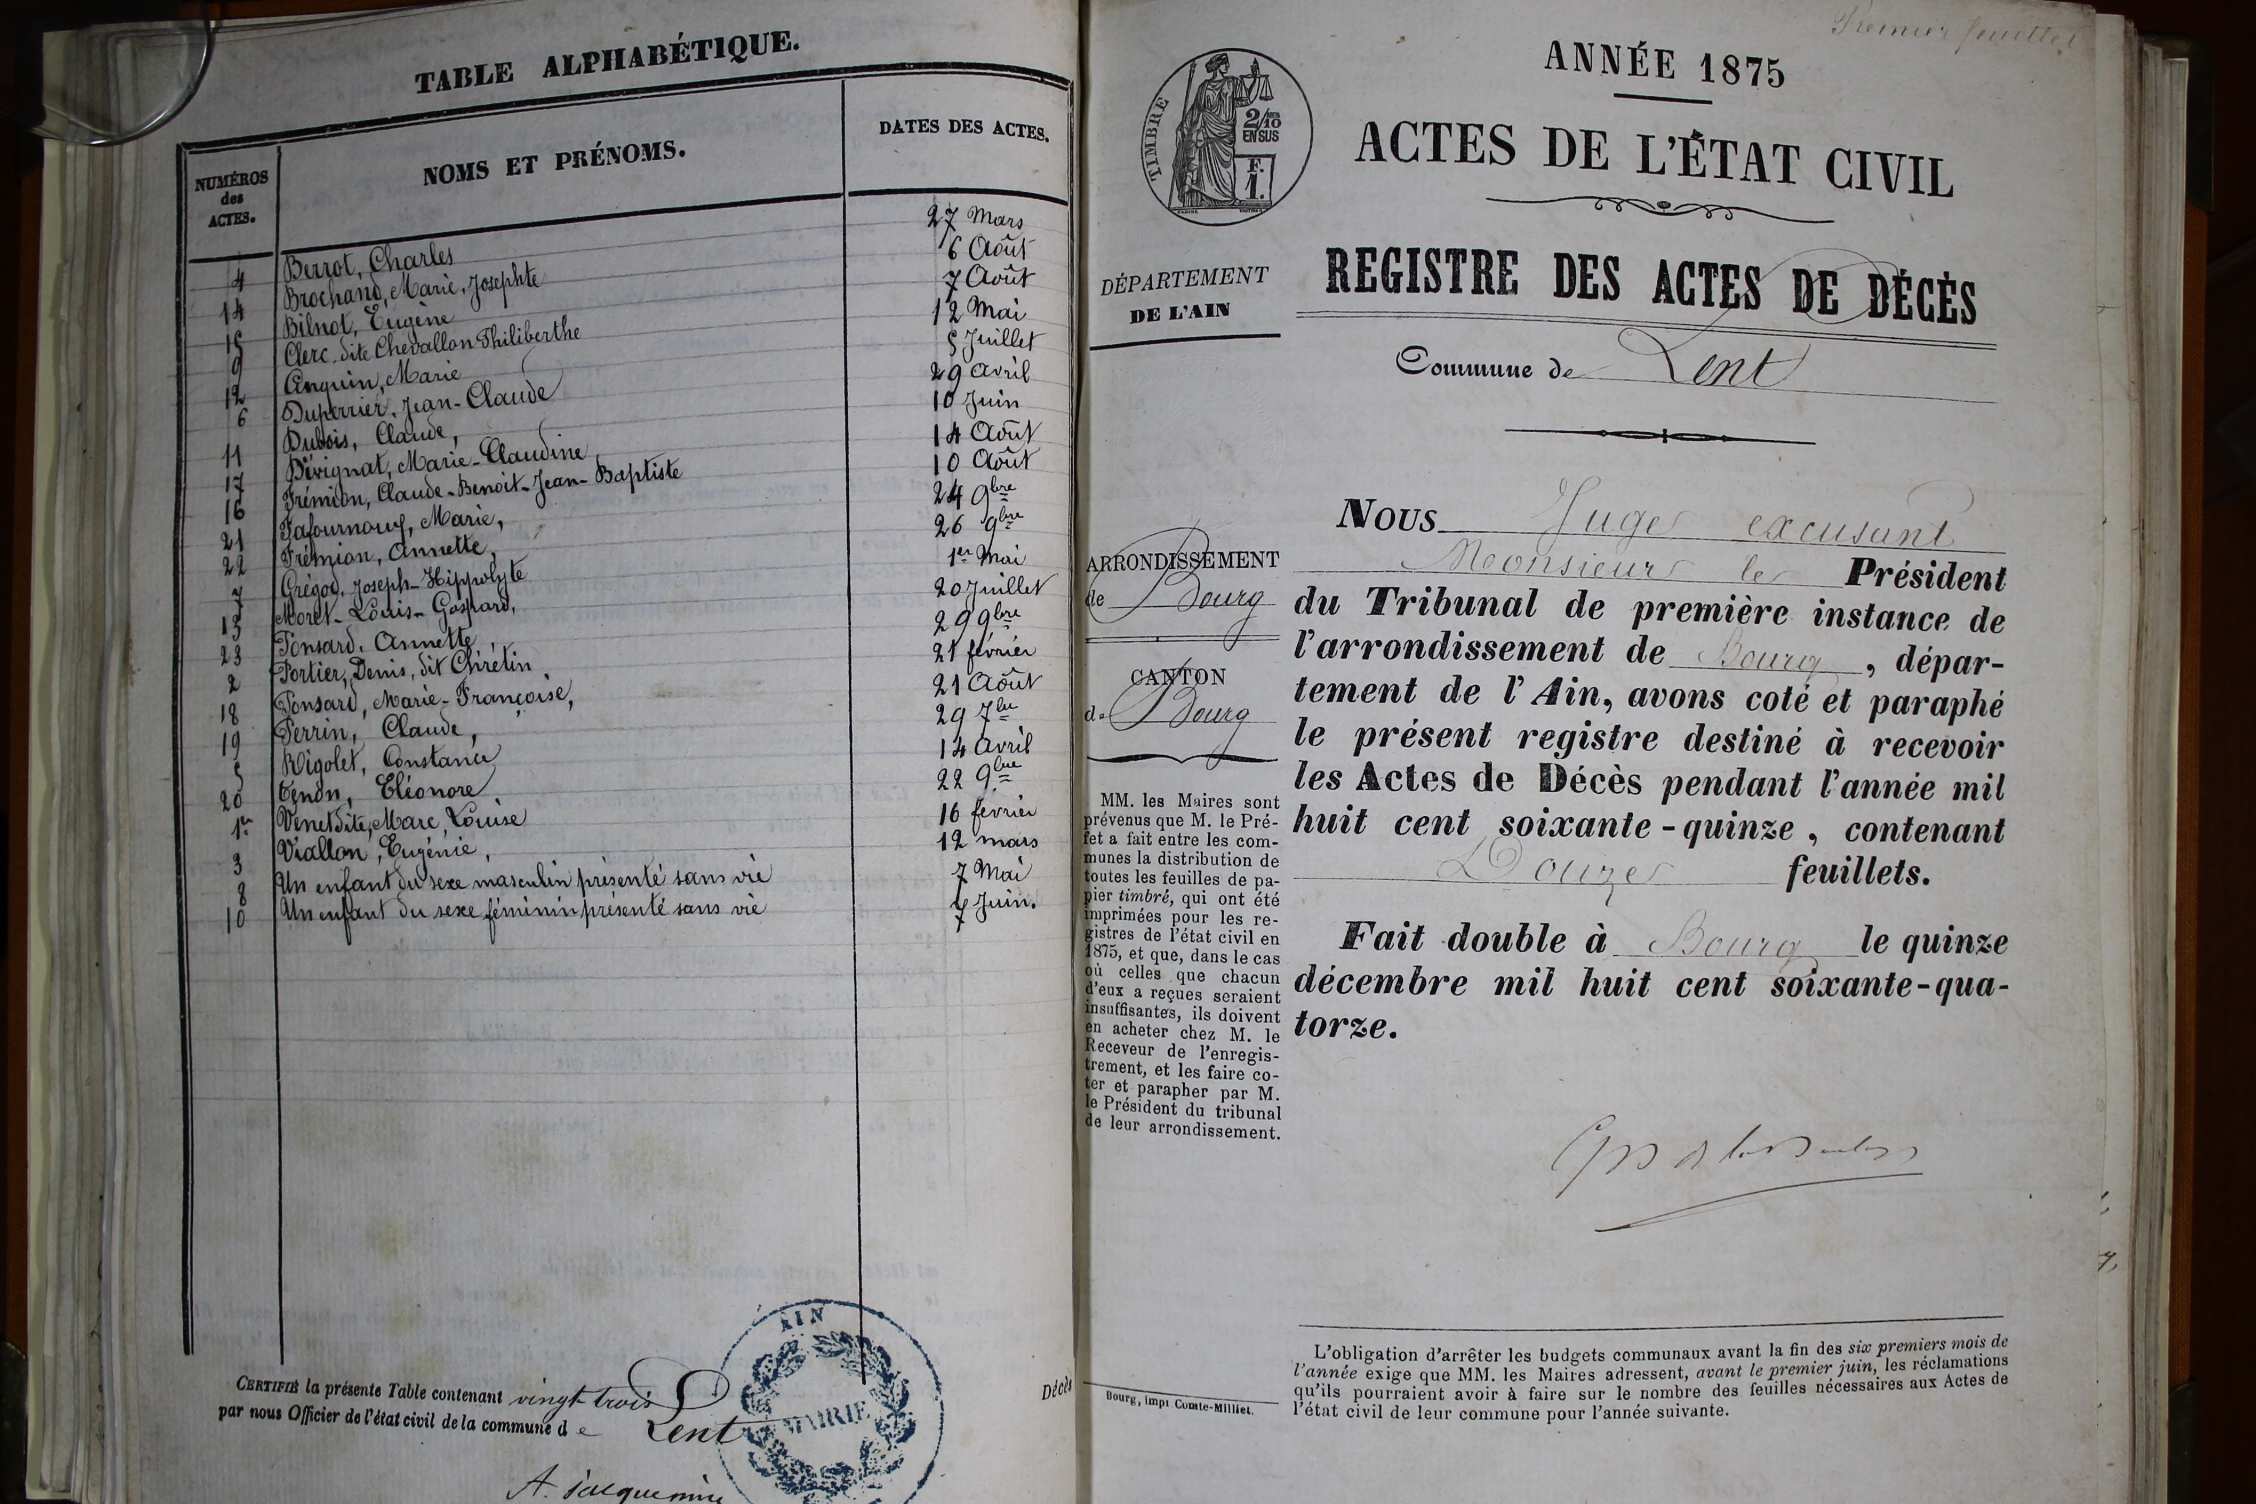 TABLE ALPHABÉTIQUE.
NUMÉROS des ACTES. NOMS ET PRÉNOMS. DATES DES ACTES.
4 Berrot, Charles 27 Mars
14 Brochand, Marie, Josephte 6 Août
15 Bilnot, Eugène 7 Août
9 Clerc dite Chevallon Philiberthe 12 Mai
12 Cinquin, Marie 5 Juillet
6 Duperrier, Jean-Claude 29 avril
11 Dubois, Claude, 10 Juin
17 Dévignat, Marie-Claudine 14 Août
16 Frémion, Claude-Benoit-Jean-Baptiste 10 Août
21 Marie, 24 9bre
22 Frémion, annette, 26 9bre
7 Joseph-Hippolyte 1er Mai
13 Moret-Louis-Gaspard, 20 Juillet
23 Ponsard, Annette 29 9bre
2 Portier, Denis, dit Chrétin 21 février
18 Ponsard, Marie-Françoise, 21 Août
19 Perrin, Claude, 29 7bre
5 Rigolet, Constance 14 avril
20 Tenon, Eléonore 22 9bre
1er Venet dite, Marc, Louise 16 février
3 Viallon, Eugénie, 12 mars
8 Un enfant du sexe masculin présenté sans vie 7 Mai
10 Un enfant du sexe féminin présenté sans vie Juin.
CERTIFIÉ la présente Table contenant vingt-trois Décès
par nous Officier de l'état civil de la commune de Lent
AIN
MAIRIE
A. Jacquemin
Premier feuillet
ANNÉE 1875
TIMBRE
2/10 EN SUS
F. 1.
ACTES DE L'ÉTAT CIVIL
DÉPARTEMENT
DE L'AIN
REGISTRE DES ACTES DE DÉCÈS
Commune de Lent
ARRONDISSEMENT
de Bourg
CANTON
de Bourg
MM. les Maires sont
prévenus que M. le Pré-
fet a fait entre les com-
munes la distribution de
toutes les feuilles de pa-
pier timbré, qui ont été
imprimées pour les re-
gistres de l'état civil en
1875, et que, dans le cas
où celles que chacun
d'eux a reçues seraient
insuffisantes, ils doivent
en acheter chez M. le
Receveur de l'enregis-
trement, et les faire co-
ter et parapher par M.
le Président du tribunal
de leur arrondissement.
Bourg, impr Comte-Milliet.
NOUS Juge excusant
Monsieur le Président
du Tribunal de première instance de
l'arrondissement de Bourg, dépar-
tement de l'Ain, avons coté et paraphé
le présent registre destiné à recevoir
les Actes de Décès pendant l'année mil
huit cent soixante-quinze, contenant
Douze feuillets.
Fait double à Bourg le quinze
décembre mil huit cent soixante-qua-
torze.
L'obligation d'arrêter les budgets communaux avant la fin des six premiers mois de
l'année exige que MM. les Maires adressent, avant le premier juin, les réclamations
qu'ils pourraient avoir à faire sur le nombre des feuilles nécessaires aux Actes de
l'état civil de leur commune pour l'année suivante.